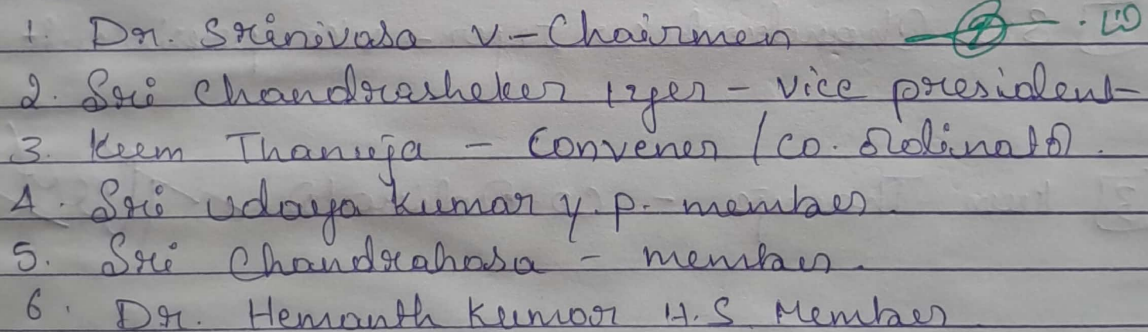 1. Dr. Srinivasa V - Chairmen
2. Sri Chandrasheker Iyer - Vice president
3. Kum Thanuja - Convener / co. ordinator.
4. Sri Udaya Kumar Y. P. - member.
5. Sri Chandrahasa - member.
6. Dr. Hemanth Kumar H.S Member